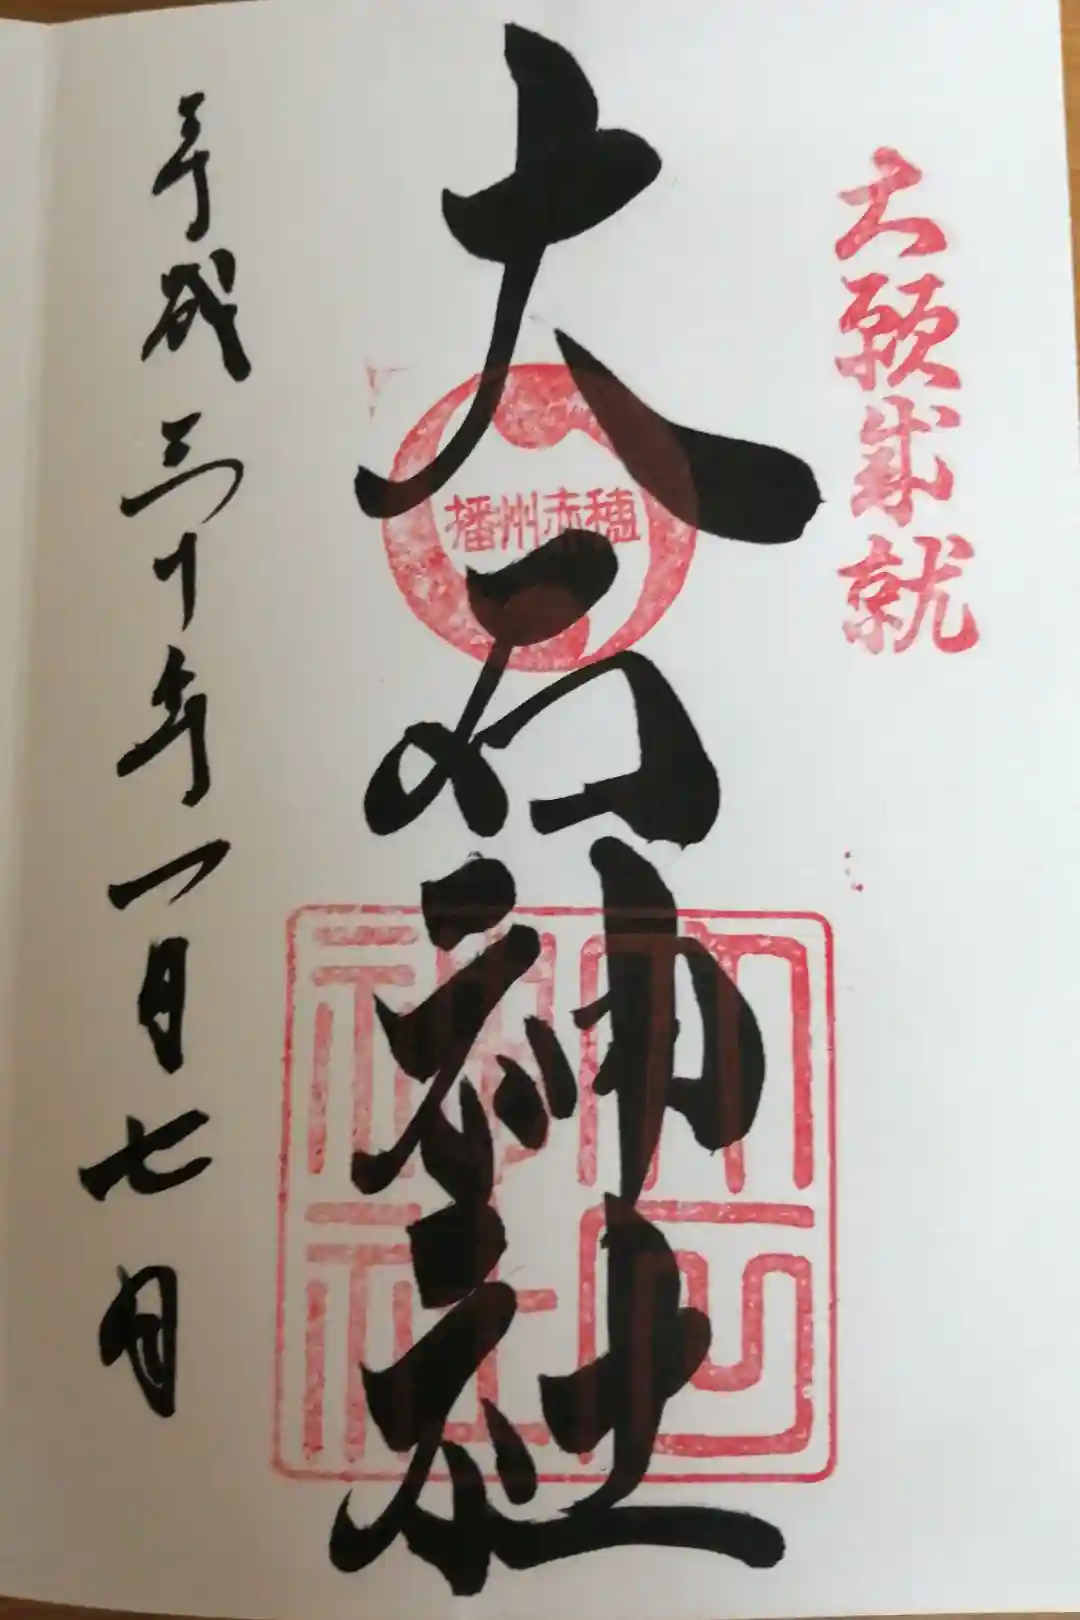 大願成就
大石神社
播州赤穂
平成三十年一月七日